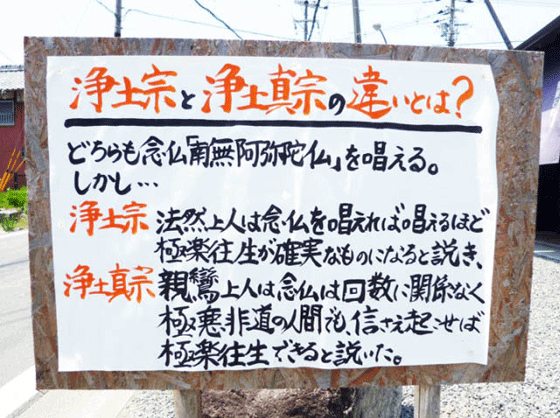 浄土宗と浄土真宗の違いとは?
どちらも念仏「南無阿弥陀仏」を唱える。
しかし…
浄土宗 法然上人は念仏を唱えれば唱えるほど
極楽往生が確実なものになると説き、
浄土真宗 親鸞上人は念仏は回数に関係なく
極悪非道の人間でも、信さえ起こせば
極楽往生できると説いた。